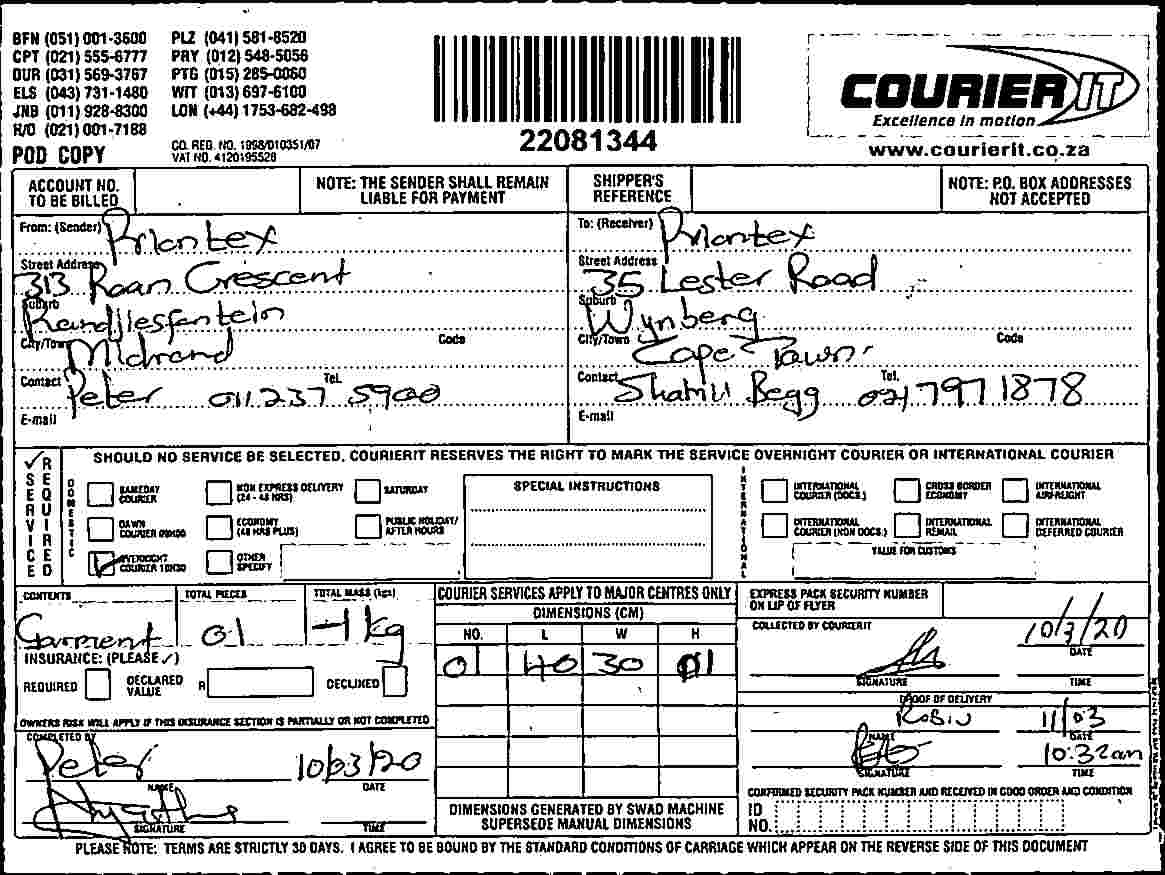 BFN (051) 001-3600 PLZ (041) 581-8520
CPT (021) 555-6777 PRY (012) 548-5056
DUR (031) 569-3767 PTG (015) 285-0060
ELS (043) 731-1480 WIT (013) 697-6100
JNB (011) 928-8300 LON (+44) 1753-682-498
H/O (021) 001-7188
POD COPY
CO. REG. NO. 1998/010351/07
VAT NO. 4120195528
22081344
COURIER IT
Excellence in motion
www.courierit.co.za
ACCOUNT NO. TO BE BILLED
NOTE: THE SENDER SHALL REMAIN LIABLE FOR PAYMENT
SHIPPER'S REFERENCE
NOTE: P.O. BOX ADDRESSES NOT ACCEPTED
From: (Sender) Priontex
Street Address 313 Roan Crescent
Suburb Randjiesfontein
City/Town Midrand Code
Contact Peter Tel. 011 237 5900
E-mail
To: (Receiver) Priontex
Street Address 35 Lester Road
Suburb Wynberg
City/Town Cape Town Code
Contact Begg Tel. 021 797 1878
E-mail
SERVICE REQUIRED
SHOULD NO SERVICE BE SELECTED, COURIERIT RESERVES THE RIGHT TO MARK THE SERVICE OVERNIGHT COURIER OR INTERNATIONAL COURIER
DOMESTIC
SAMEDAY COURIER
NON EXPRESS DELIVERY (24 - 48 HRS)
SATURDAY
DAWN COURIER 09H00
ECONOMY (48 HRS PLUS)
PUBLIC HOLIDAY/ AFTER HOURS
OVERNIGHT COURIER 10H30
OTHER SPECIFY
SPECIAL INSTRUCTIONS
INTERNATIONAL
INTERNATIONAL COURIER (DOCS.)
CROSS BORDER ECONOMY
INTERNATIONAL AIRFREIGHT
INTERNATIONAL COURIER (NON DOCS.)
INTERNATIONAL REMAIL
INTERNATIONAL DEFERRED COURIER
VALUE FOR CUSTOMS
CONTENTS TOTAL PIECES TOTAL MASS (kgs)
Garment 01 1kg
INSURANCE: (PLEASE ✓)
REQUIRED DECLARED VALUE R DECLINED
OWNERS RISK WILL APPLY IF THIS INSURANCE SECTION IS PARTIALLY OR NOT COMPLETED
COMPLETED BY
Peter 10/03/20
NAME DATE
SIGNATURE TIME
COURIER SERVICES APPLY TO MAJOR CENTRES ONLY
DIMENSIONS (CM)
NO. L W H
01 40 30 01
DIMENSIONS GENERATED BY SWAD MACHINE SUPERSEDE MANUAL DIMENSIONS
EXPRESS PACK SECURITY NUMBER ON LIP OF FLYER
COLLECTED BY COURIERIT
10/3/20
DATE
SIGNATURE TIME
PROOF OF DELIVERY
Robin 11/03
NAME DATE
10:32am
SIGNATURE TIME
CONFIRMED SECURITY PACK NUMBER AND RECEIVED IN GOOD ORDER AND CONDITION
ID NO.
PLEASE NOTE: TERMS ARE STRICTLY 30 DAYS. I AGREE TO BE BOUND BY THE STANDARD CONDITIONS OF CARRIAGE WHICH APPEAR ON THE REVERSE SIDE OF THIS DOCUMENT